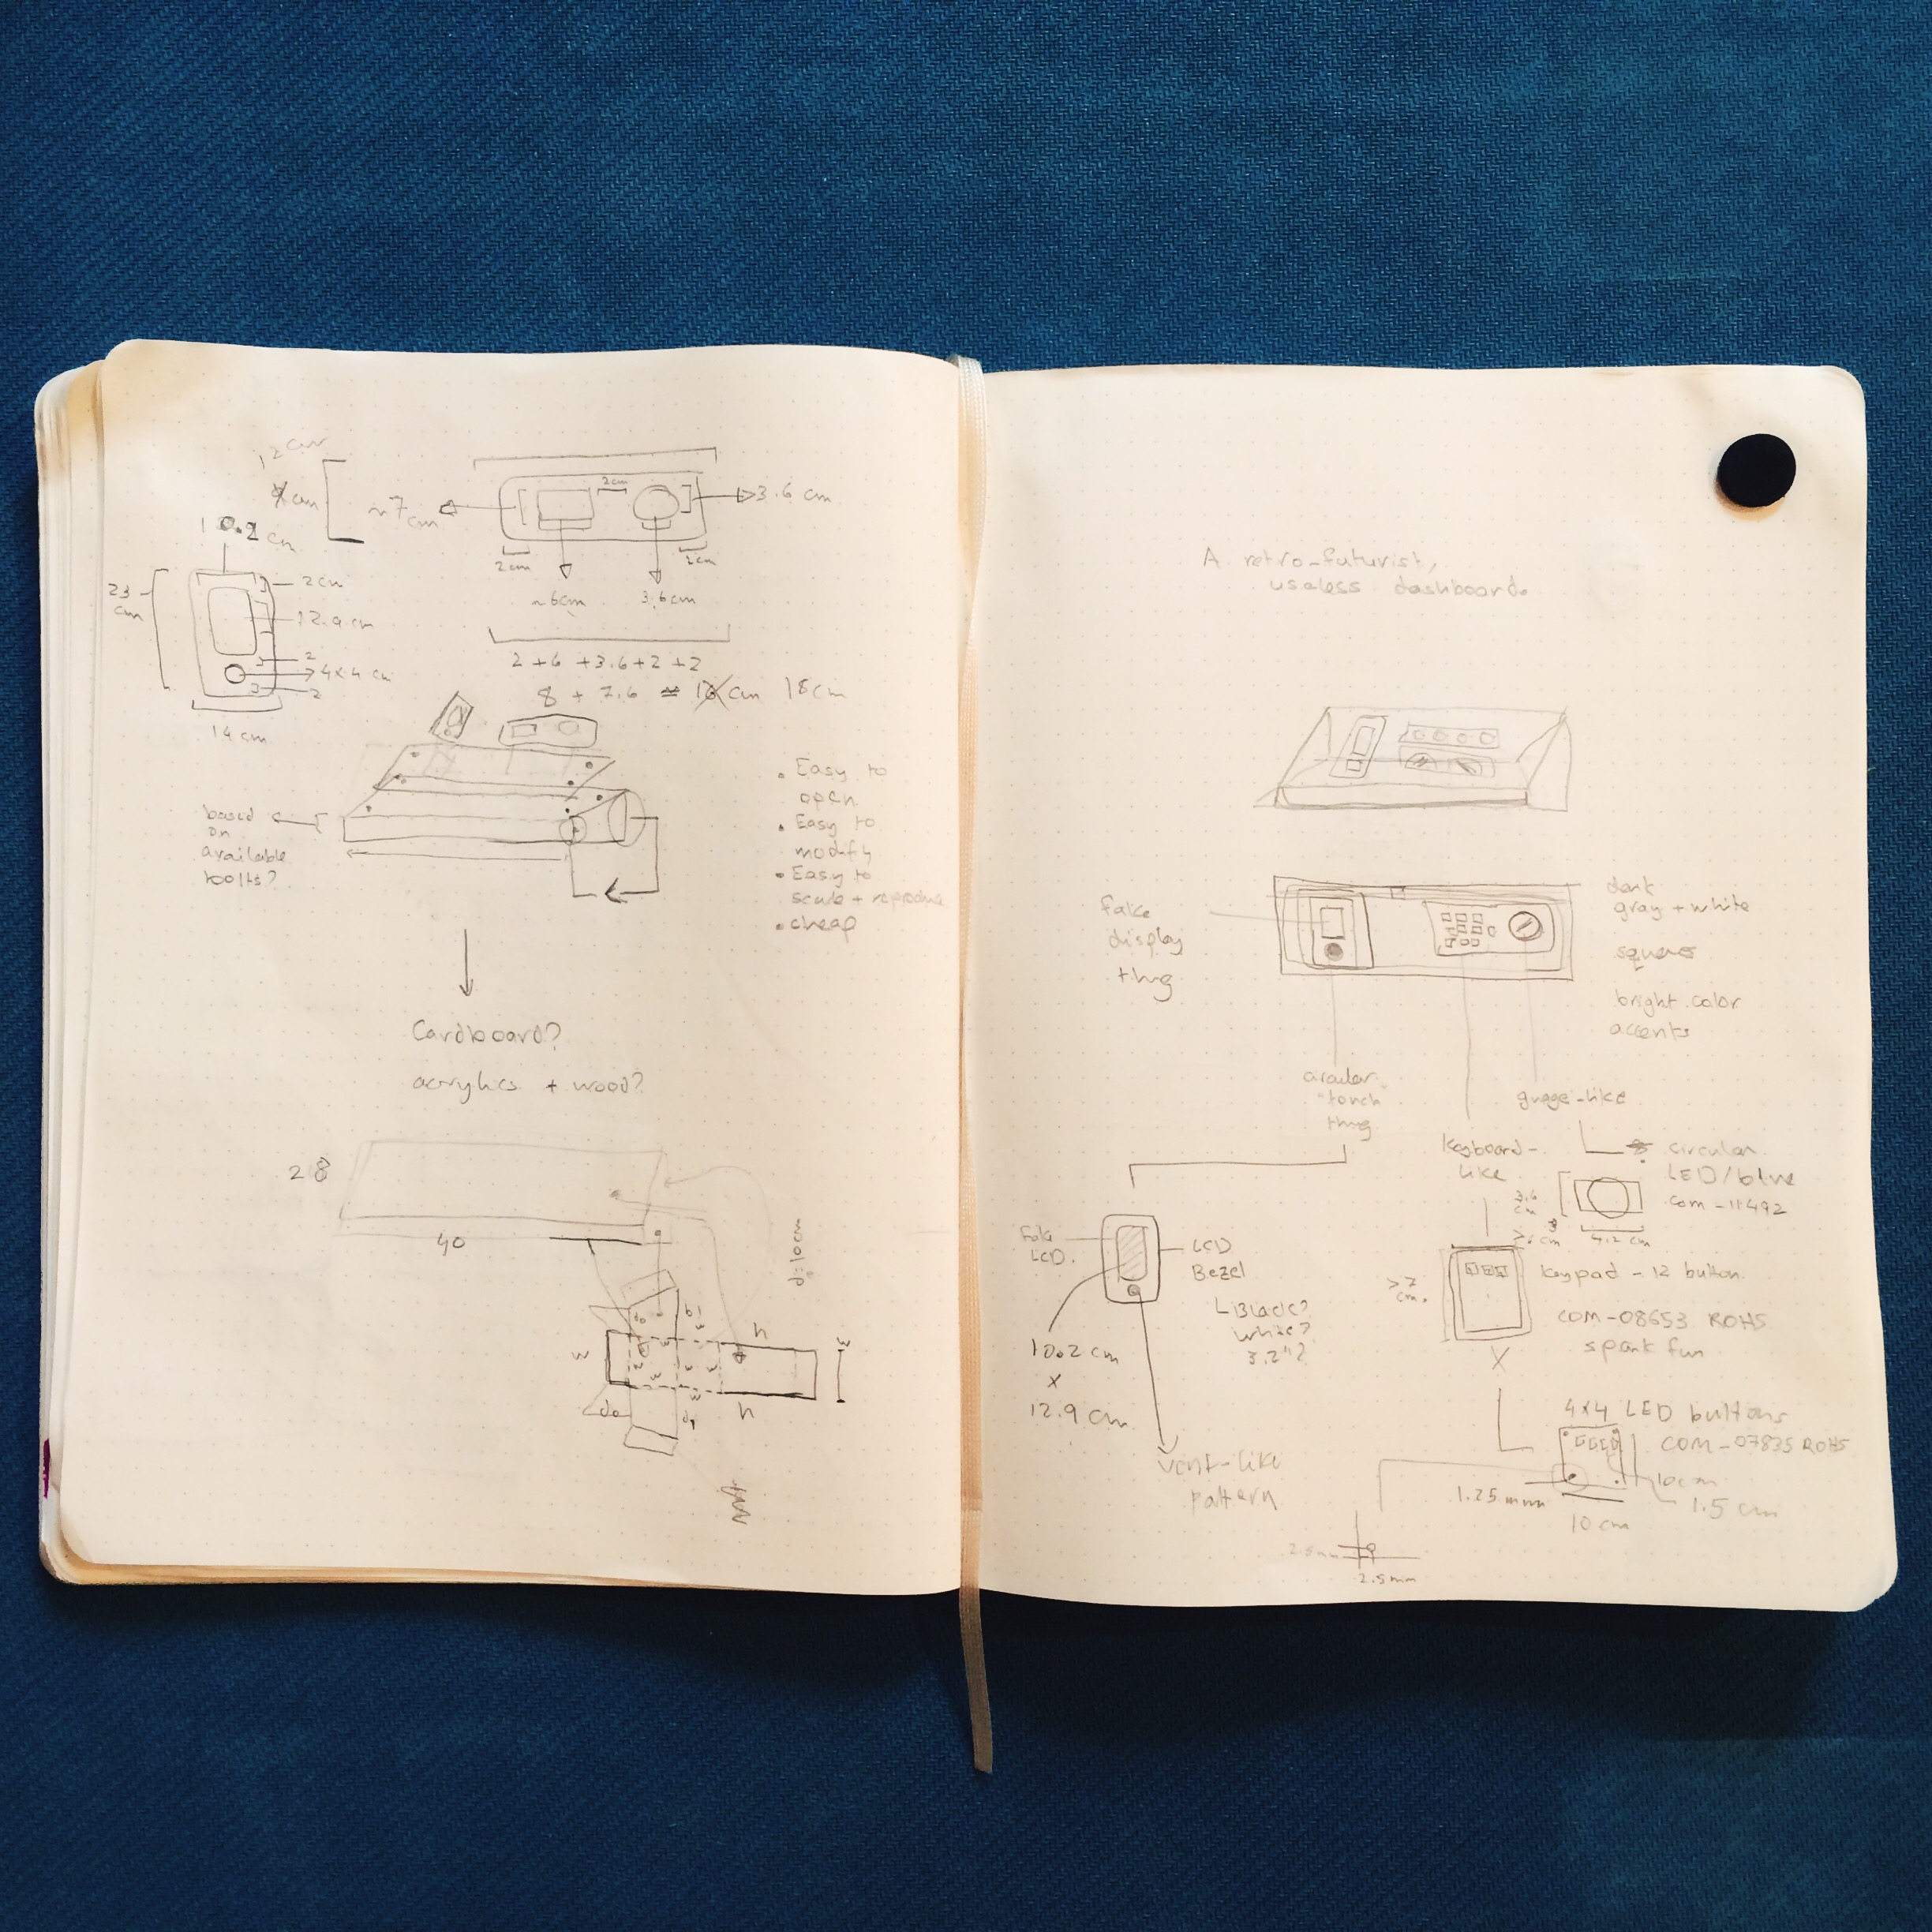 12 cm
cm
~7
cm
2cm
3.6 cm
2cm
2cm
~6cm
3.6cm
2 + 6 + 3.6 + 2 + 2
8 + 7.6 = 16 cm 18cm
10.2 cm
23
cm
2cm
12.9 cm
2
4x4 cm
2
14 cm
based
on
available
bolts?
• Easy to
open
• Easy to
modify
• Easy to
scale + reproduce
• cheap
Cardboard?
acrylics + wood?
28
40
d: 10cm
h
h
A retro-futurist,
useless dashboard.
fake
display
thng
dark
gray + white
squares
bright color
accents
circular
touch
thng
guage-like
Keyboard-
like
circular
LED/blue
com-11492
3.6
cm
4.2 cm
Fake
LCD.
LCD
Bezel
Black?
white?
3.2"?
10.2 cm
x
12.9 cm
vent-like
pattern
>7
cm.
keypad - 12 button
COM-08653 ROHS
spark fun
X
4x4 LED buttons
COM-07835 ROHS
10cm
1.5 cm
1.25 mm
10 cm
2.5mm
2.5mm